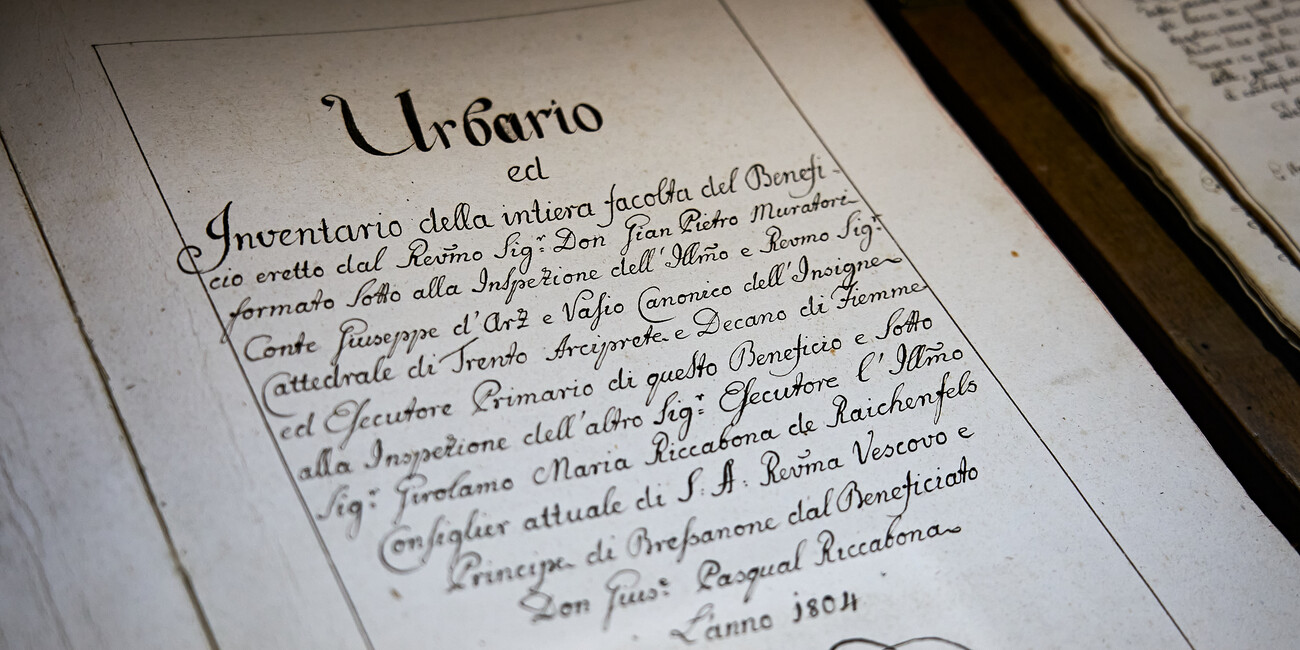 Urbario
ed
Inventario della intiera facolta del Benefi-
cio eretto dal Revm̃o Sig.r Don Gian Pietro Muratori
formato sotto alla Inspezione dell' Illm̃o e Revmo Sig.r
Conte Giuseppe d'Arz e Vasio Canonico dell'Insigne
Cattedrale di Trento Arciprete e Decano di Fiemme
ed Esecutore Primario di questo Beneficio e Sotto
alla Inspezione dell'altro Sig.r Esecutore l'Illm̃o
Sig.r Girolamo Maria Riccabona de Raichenfels
Consiglier attuale di S. A. Revm̃a Vescovo e
Principe di Breßanone dal Beneficiato
Don Gius.e Pasqual Riccabona
L'anno 1804